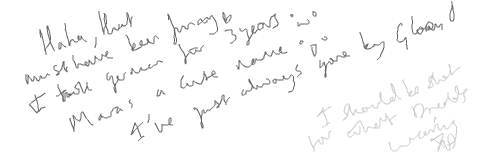 Haha, that
must have been funny
I took german for 3 years :'D
Mara's a cute name :'D
I've just always gone by Gloom
I should be shot
for what
wearing XD